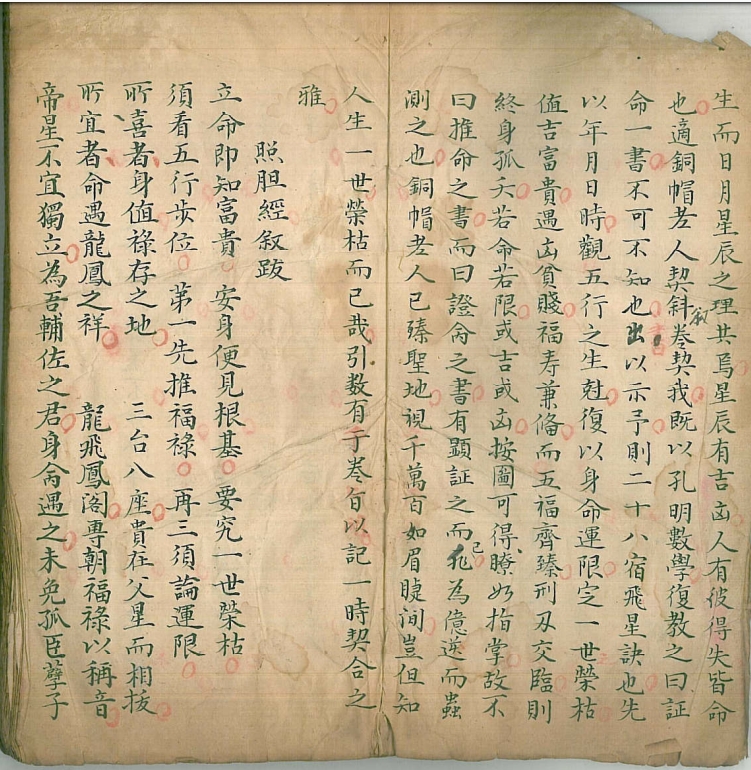 生而日月星辰之理共焉星辰有吉凶人有彼得失皆命
也適銅帽老人契斜叙卷契我既以孔明數學復教之曰証
命一書不可不知也書出以示予則二十八宿飛星訣也先
以年月日時觀五行之生尅復以身命運限定一世榮枯
值吉富貴遇凶貧賤福寿兼偹而五福齊臻刑刃交臨則
終身孤夭若命若限或吉或凶按圖可得瞭如指掌故不
曰推命之書而曰證侖之書有顕証之而已非為億逆而蠡
測之也銅帽老人已臻聖地視千萬百如眉睫间豈但知
人生一世榮枯而已哉引数有于巻旨以記一時契合之
雅
照胆經叙跋
立命即知富貴 安身便見根基 要究一世榮枯
須看五行步位 第一先推福祿 再三須論運限
所喜者身值祿存之地 三台八座貴在父星而相扳
所宜者命遇龍鳳之祥 龍飛鳳阁專朝福祿以稱音
帝星不宜獨立為吾輔佐之君身侖遇之未免孤臣孽子